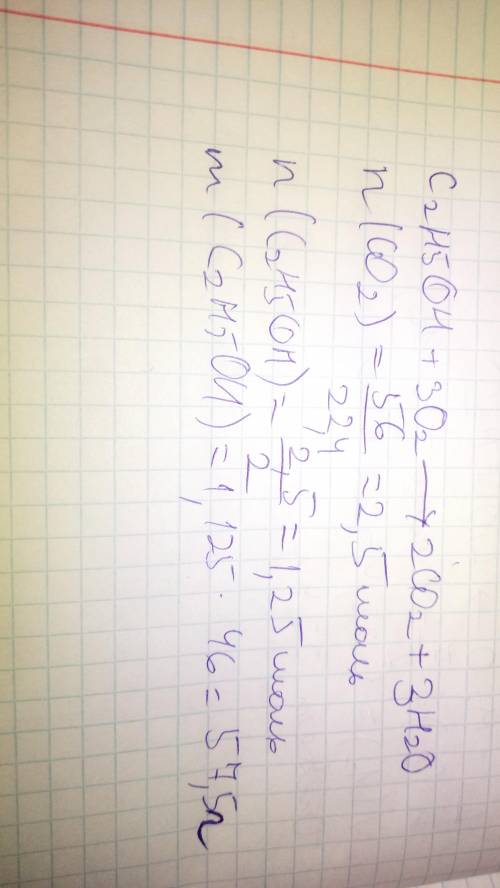 C₂H₅OH + 3O₂ → 2CO₂ + 3H₂O
n(CO₂) = 56/22,4 = 2,5 моль
n(C₂H₅OH) = 2,5/2 = 1,25 моль
m(C₂H₅OH) = 1,125 · 46 = 57,5г